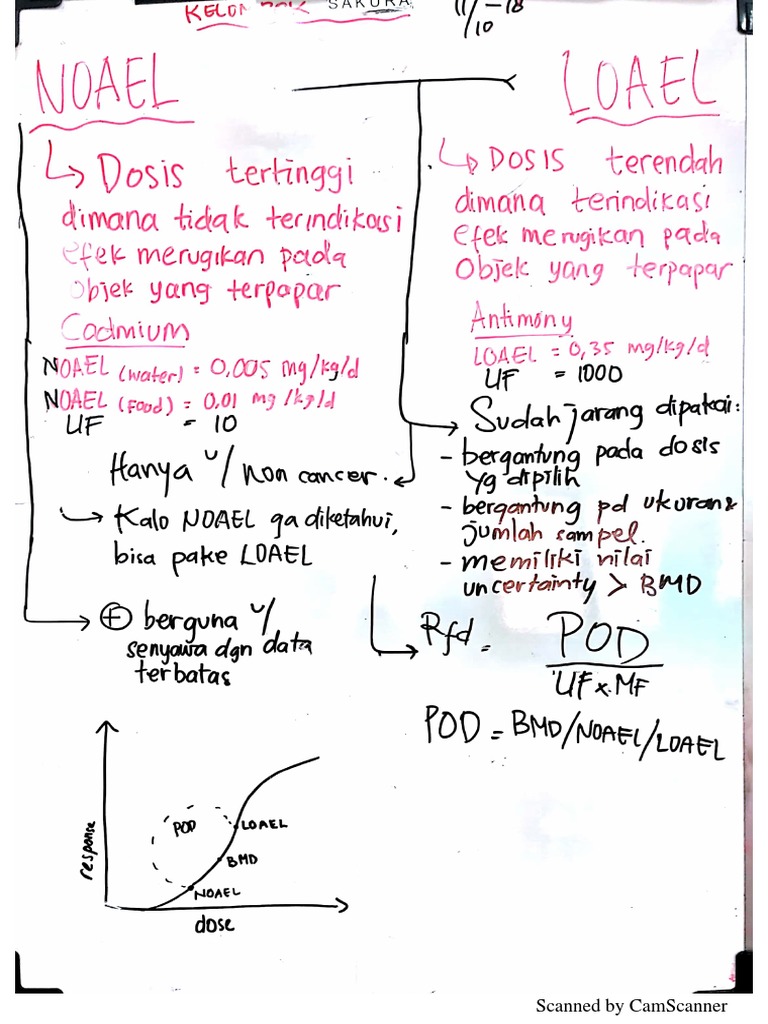 SAKURA
11/10 - 18
NOAEL
↳ Dosis tertinggi
dimana tidak terindikasi
efek merugikan pada
objek yang terpapar
Cadmium
NOAEL (water) = 0,005 mg/kg/d
NOAEL (Food) = 0.01 mg/kg/d
UF = 10
Hanya u/ non cancer.
↳ Kalo NOAEL ga diketahui,
bisa pake LOAEL
⊕ berguna u/
senyawa dgn data
terbatas
LOAEL
↳ DOSIS terendah
dimana terindikasi
efek merugikan pada
Objek yang terpapar
Antimony
LOAEL = 0,35 mg/kg/d
UF = 1000
Sudah jarang dipakai:
- bergantung pada dosis
yg dipilih
- bergantung pd ukuran &
jumlah sampel.
- memiliki nilai
uncertainty > BMD
Rfd = POD
UF x MF
POD = BMD/NOAEL/LOAEL
response
POD
LOAEL
BMD
NOAEL
dose
Scanned by CamScanner